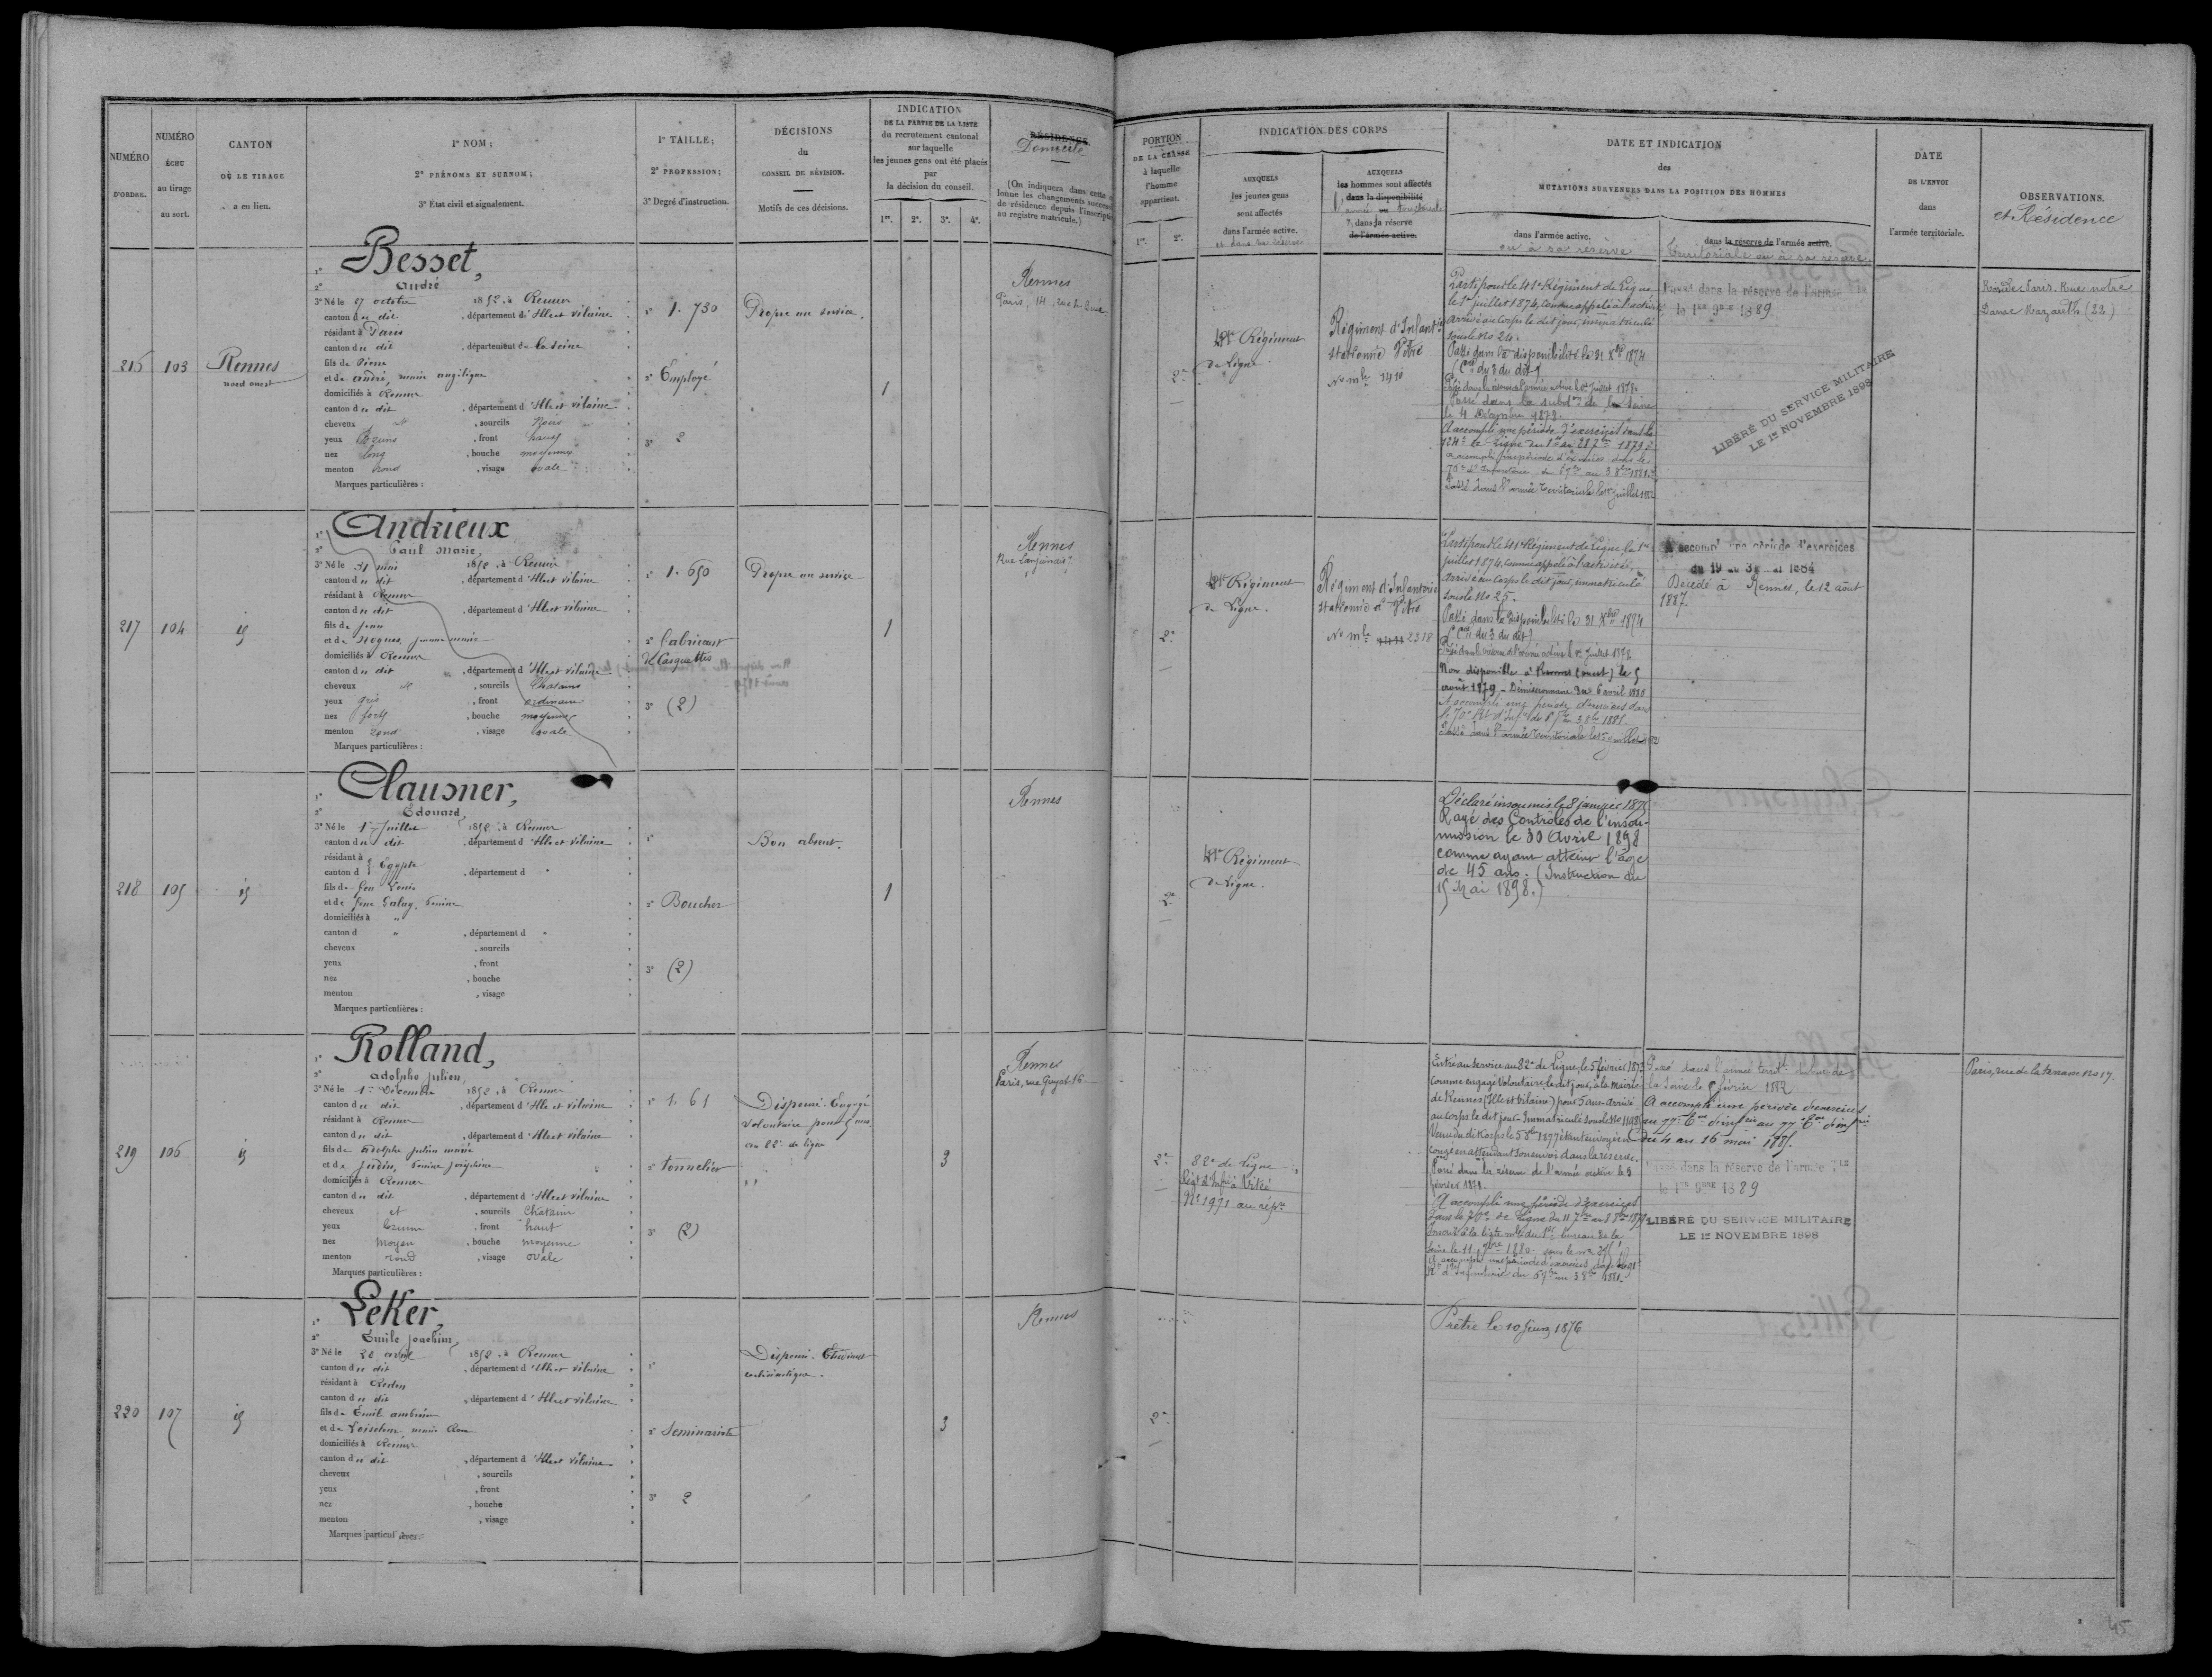 NUMÉRO
D'ORDRE.
NUMÉRO
ÉCHU
au tirage
au sort.
CANTON
OÙ LE TIRAGE
a eu lieu.
1º NOM;
2º PRÉNOMS ET SURNOM;
3º État civil et signalement.
1º TAILLE;
2º PROFESSION;
3º Degré d'instruction.
DÉCISIONS
du
CONSEIL DE RÉVISION.
Motifs de ces décisions.
INDICATION
DE LA PARTIE DE LA LISTE
du recrutement cantonal
sur laquelle
les jeunes gens ont été placés
par
la décision du conseil.
1re. 2e. 3e. 4e.
RÉSIDENCE
Domicile
(On indiquera dans cette
lonne les changements success
de résidence depuis l'inscripti
au registre matricule.)
PORTION
DE LA CLASSE
à laquelle
l'homme
appartient.
1re. 2e.
INDICATION DES CORPS
AUXQUELS
les jeunes gens
sont affectés
dans l'armée active.
et dans sa réserve
AUXQUELS
les hommes sont affectés
1º dans la disponibilité
armée territoriale
2º dans la réserve
de l'armée active.
DATE ET INDICATION
des
MUTATIONS SURVENUES DANS LA POSITION DES HOMMES
dans l'armée active.
ou à sa réserve
dans la réserve de l'armée active.
territoriale ou à sa réserve
DATE
DE L'ENVOI
dans
l'armée territoriale.
OBSERVATIONS.
et Résidence
216
103
Rennes
nord ouest
1º Besset,
2º André
3º Né le 27 octobre 1852, à Rennes
canton du dit, département d'Ille et vilaine
résidant à Paris
canton du dit, département de la Seine
fils de Pierre
et de André, marie angélique
domiciliés à Rennes
canton du dit, département d'Ille et vilaine
cheveux et, sourcils Noirs
yeux Bruns, front haut
nez long, bouche moyenne
menton rond, visage ovale
Marques particulières :
1º 1. 730
2º Employé
3º 2
Propre au service.
1
Rennes
Paris, 14, rue
2e
41e Régiment
de Ligne
Régiment d'Infantie
stationné Vitré
No mle 1410
Parti pour le 41e Régiment de Ligne
le 1er juillet 1874, comme appelé à l'activité
Arrivé au Corps le dit jour, immatriculé
sous le No 24.
Passé dans la disponibilité le 31 Xbre 1874
(Con du 3 du dit)
Passé dans la réserve de l'armée active le 1er Juillet 1878.
Passé dans la subdon de la Seine
le 4 Décembre 1878.
A accompli une période d'exercices dans le
124e de Ligne du 1er au 28 7bre 1879
a accompli une période d'exercices dans le
70e d'Infanterie du 6 7bre au 3 8bre 1881.
Passé dans l'armée territoriale le 1er juillet 1882
Passé dans la réserve de l'armée Tle
le 1er 9bre 1889
LIBÉRÉ DU SERVICE MILITAIRE
LE 1er NOVEMBRE 1898
Réside Paris. Rue notre
Dame Nazareth (22)
217
104
id
1º Andrieux
2º Paul Marie,
3º Né le 31 mai 1852, à Rennes
canton du dit, département d'Ille et vilaine
résidant à Rennes
canton du dit, département d'Ille et vilaine
fils de Jean
et de Noques, jeanne marie
domiciliés à Rennes
canton du dit, département d'Ille et vilaine
cheveux et, sourcils Chatains
yeux gris, front ordinaire
nez fort, bouche moyenne
menton rond, visage ovale
Marques particulières :
1º 1. 650
2º fabricant
de Casquettes
3º (2)
Propre au service
1
Rennes
Rue Lanjuinais
2e
41e Régiment
de Ligne.
Régiment d'Infanterie
stationné à Vitré
No mle 2318
Parti pour le 41e Régiment de Ligne, le 1er
juillet 1874, comme appelé à l'activité,
Arrivé au Corps le dit jour, immatriculé
sous le No 25.
Passé dans la disponibilité le 31 Xbre 1874
(Con du 3 du dit)
Passé dans la réserve de l'armée active le 1er Juillet 1878
Non disponible à Rennes (ouest) le 5
août 1879 - Démissionnaire du 6 avril 1880
A accompli une période d'exercices dans
le 70e Rt d'Infie du 6 7bre au 3 8bre 1881.
Passé dans l'armée territoriale le 1er juillet 1882
A accompi une période d'exercices
du 19 au 3 mai 1884
Décédé à Rennes, le 12 août
1887.
218
105
id
1º Clausner,
2º Edouard,
3º Né le 1er Juillet 1852, à Rennes
canton du dit, département d'Ille et vilaine
résidant à
canton d Egypte, département d "
fils de feu Louis
et de feue Galay, Femme
domiciliés à "
canton d ", département d "
cheveux, sourcils
yeux, front
nez, bouche
menton, visage
Marques particulières :
1º
2º Boucher
3º (2)
Bon absent.
1
Rennes
2e
41e Régiment
de Ligne.
Déclaré insoumis le 8 janvier 1875
Rayé des Contrôles de l'insou-
mission le 30 Avril 1898
comme ayant atteint l'âge
de 45 ans. (Instruction du
15 Mai 1898.)
219
106
id
1º Rolland,
2º adolphe julien,
3º Né le 1er Décembre 1852, à Rennes
canton du dit, département d'Ille et vilaine
résidant à Rennes
canton du dit, département d'Ille et vilaine
fils de adolphe julien marie
et de Jodin, Femme joséphine
domiciliés à Rennes
canton du dit, département d'Ille et vilaine
cheveux et, sourcils Chatains
yeux bruns, front haut
nez moyen, bouche moyenne
menton rond, visage ovale
Marques particulières :
1º 1. 61
2º tonnelier
3º (2)
Dispensé. Engagé
volontaire pour 5 ans
au 82e de ligne
3
Rennes
Paris, rue Guyot 16
2e
82e de Ligne
Régt d'Infie à Vitré
No 1971 au répre
Entré au service au 82e de Ligne, le 5 février 1873
comme engagé Volontaire, le dit jour, à la mairie
de Rennes (Ille et Vilaine) pour 5 ans - Arrivé
au Corps le dit jour - Immatriculé sous le No 1198
Venu du dit Corps le 5 8bre 1877 étant envoyé en
congé en attendant son envoi dans la réserve.
Passé dans la réserve de l'armée active le 5
février 1878.
A accompli une période d'exercices
dans le 70e de Ligne du 11 7bre au 8 8bre 1879
Inscrit à la liste mle du 1er bureau de la
Seine le 11 9bre 1880
A accompli une période d'exercices
d'Infanterie du 6 7bre au 3 8bre 1881.
Passé dans l'armée territ
la Seine le 5 février 1882
A accompli une période d'exercices
au 77e
du 4 au 16 mai 1885.
Passé dans la réserve de l'armée Tle
le 1er 9bre 1889
LIBÉRÉ DU SERVICE MILITAIRE
LE 1er NOVEMBRE 1898
Paris, rue de la Terrasse No 17.
220
107
id
1º Leker,
2º Emile Joachim,
3º Né le 22 avril 1852, à Rennes
canton du dit, département d'Ille et vilaine
résidant à Redon
canton du dit, département d'Ille et vilaine
fils de Emile ambroise
et de Loiseleur, marie Anne
domiciliés à Rennes
canton du dit, département d'Ille et vilaine
cheveux, sourcils
yeux, front
nez, bouche
menton, visage
Marques particulières :
1º
2º Seminariste
3º 2
Dispensé. Etudiant
ecclésiastique.
3
Rennes
2e
Prêtre le 10 Juin 1876
45